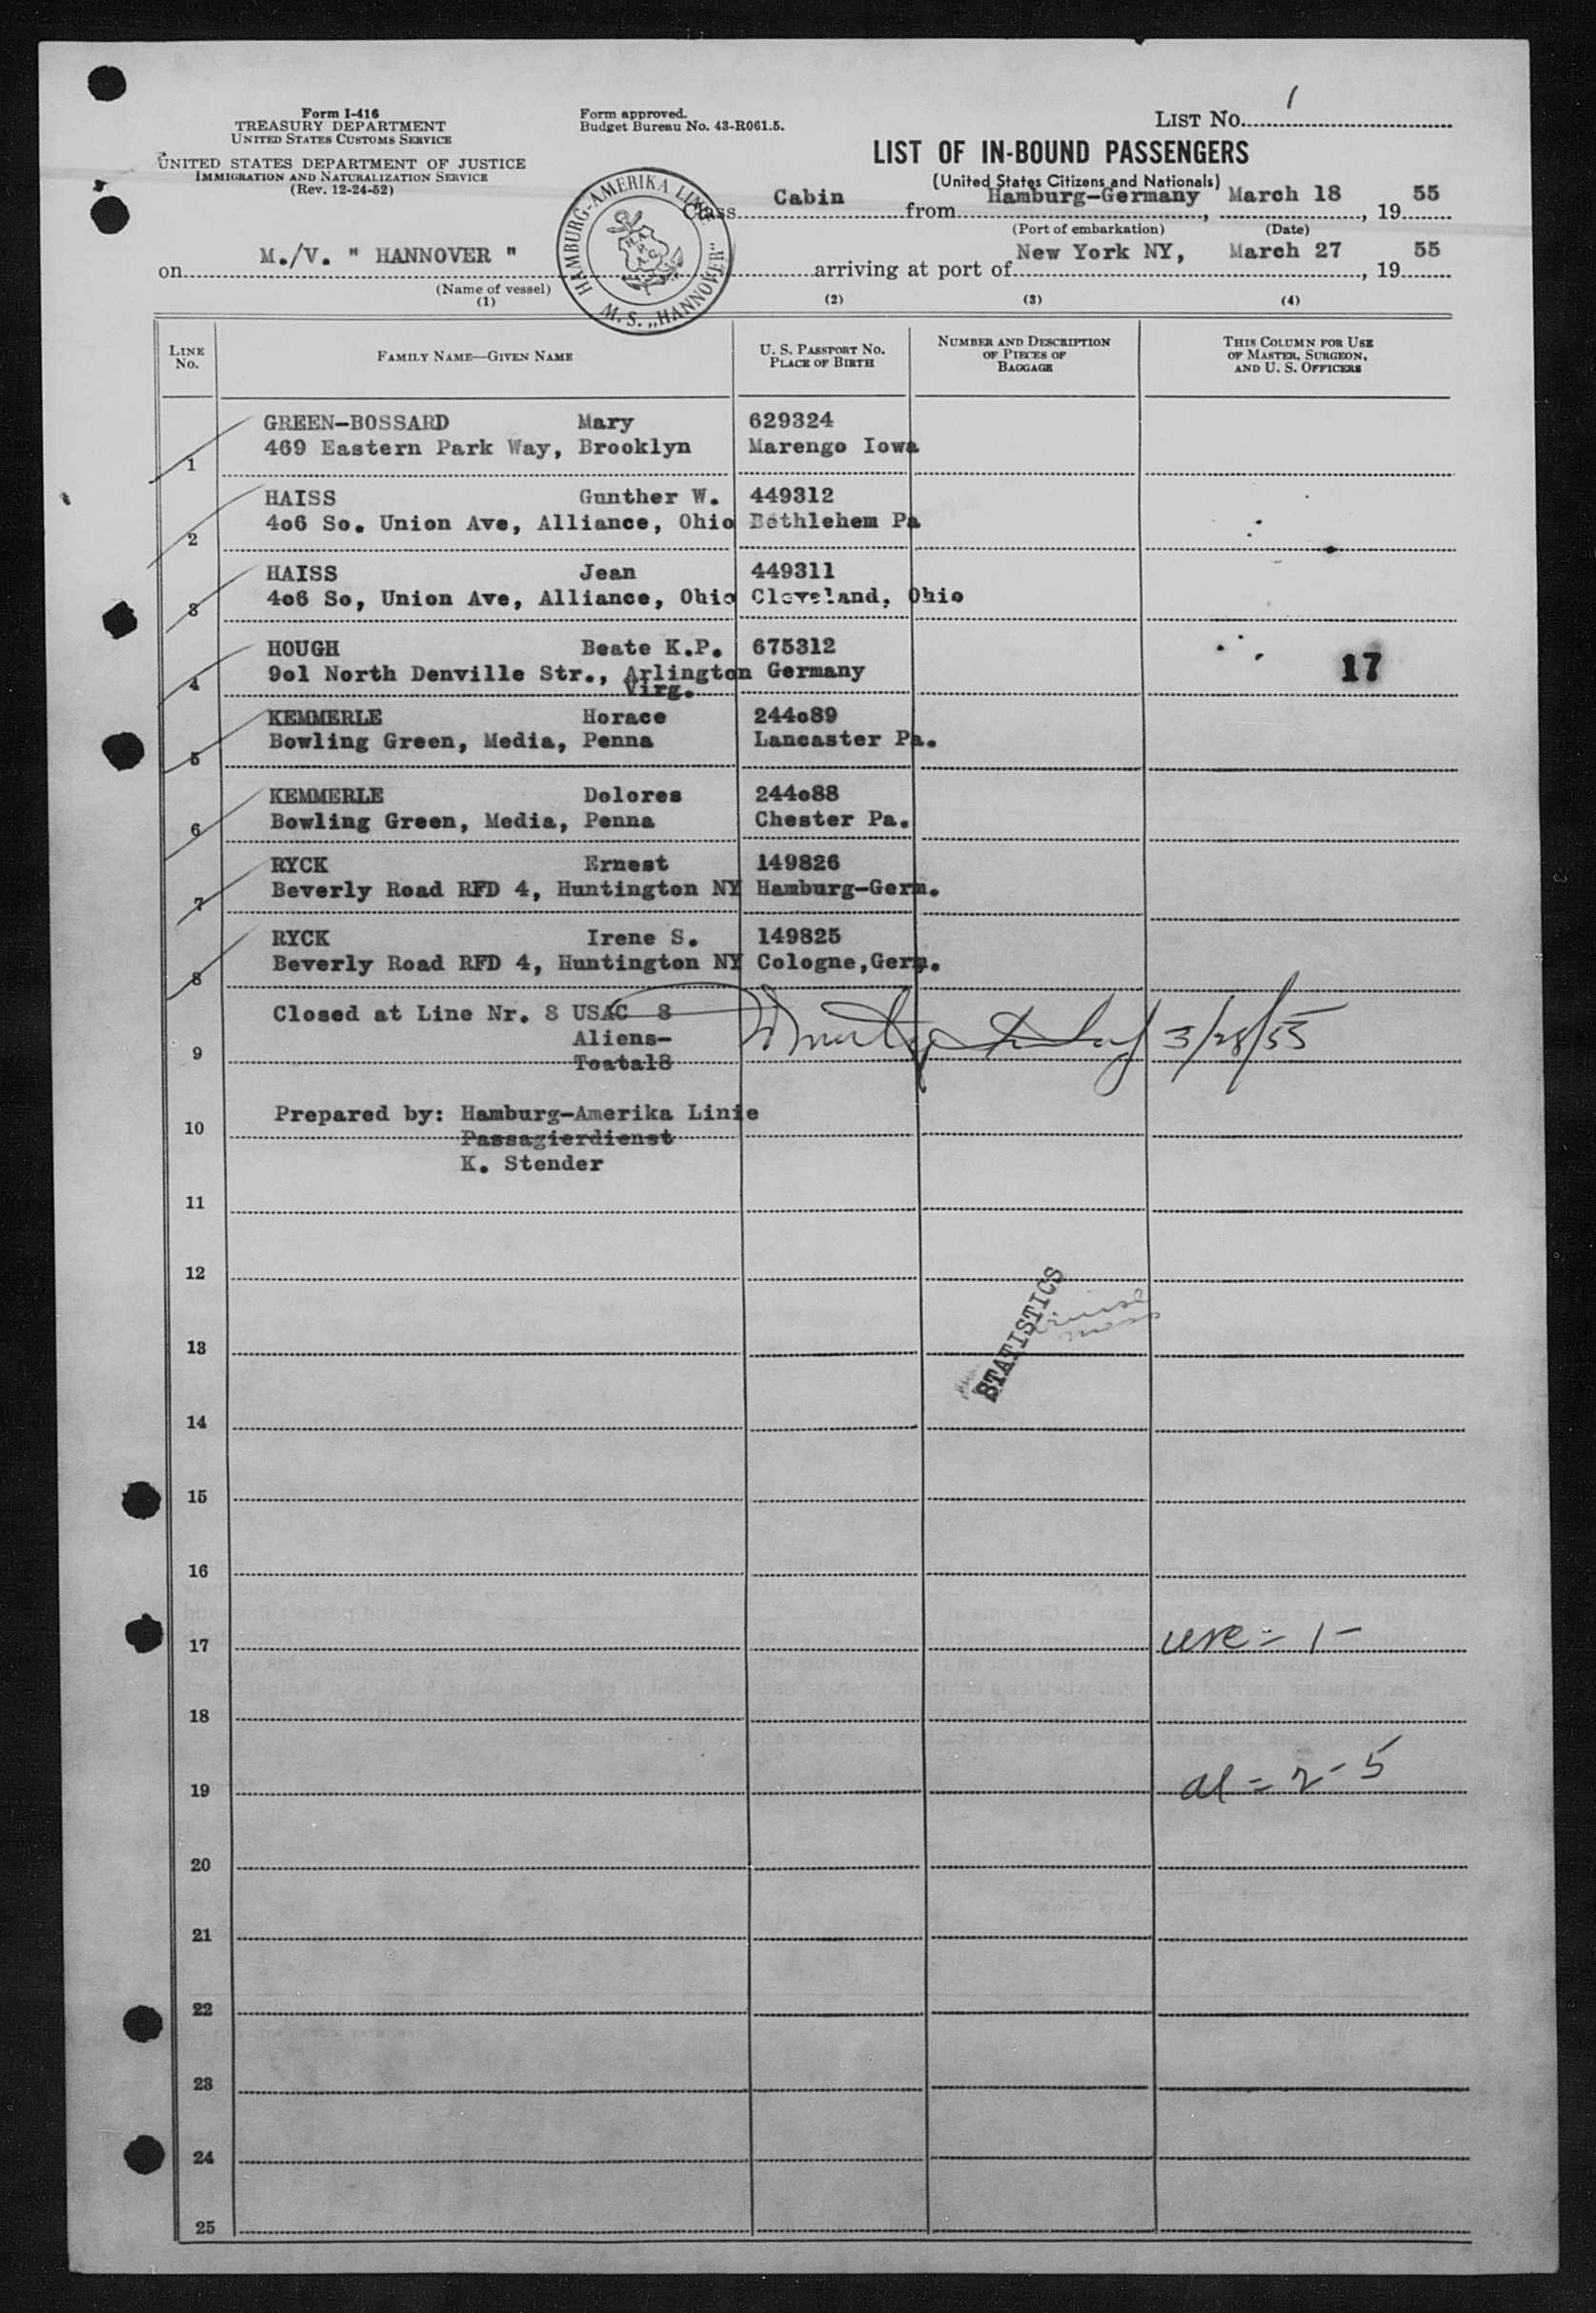 Form I-416
TREASURY DEPARTMENT
UNITED STATES CUSTOMS SERVICE
UNITED STATES DEPARTMENT OF JUSTICE
IMMIGRATION AND NATURALIZATION SERVICE
(Rev. 12-24-52)
Form approved.
Budget Bureau No. 43-R061.5.
LIST No. 1
LIST OF IN-BOUND PASSENGERS
(United States Citizens and Nationals)
Class Cabin from Hamburg-Germany, March 18, 19 55
(Port of embarkation) (Date)
on M./V. " HANNOVER " arriving at port of New York NY, March 27, 19 55
(Name of vessel)
HAMBURG-AMERIKA LINIE
M. S. „HANNOVER"
(1) (2) (3) (4)
LINE No. FAMILY NAME—GIVEN NAME U. S. PASSPORT No. PLACE OF BIRTH NUMBER AND DESCRIPTION OF PIECES OF BAGGAGE THIS COLUMN FOR USE OF MASTER, SURGEON, AND U. S. OFFICERS
GREEN-BOSSARD Mary 629324
1 469 Eastern Park Way, Brooklyn Marengo Iowa
HAISS Gunther W. 449312
2 4o6 So. Union Ave, Alliance, Ohio Bethlehem Pa
HAISS Jean 449311
3 4o6 So, Union Ave, Alliance, Ohio Cleveland, Ohio
HOUGH Beate K.P. 675312
4 9o1 North Denville Str., Arlington Germany 17
Virg.
KEMMERLE Horace 244o89
5 Bowling Green, Media, Penna Lancaster Pa.
KEMMERLE Dolores 244o88
6 Bowling Green, Media, Penna Chester Pa.
RYCK Ernest 149826
7 Beverly Road RFD 4, Huntington NY Hamburg-Germ.
RYCK Irene S. 149825
8 Beverly Road RFD 4, Huntington NY Cologne,Germ.
Closed at Line Nr. 8 USAC 8 3/28/55
Aliens-
9 Toatal8
Prepared by: Hamburg-Amerika Linie
10 Passagierdienst
K. Stender
11
12
STATISTICS
13
14
15
16
17
18
19 al = 2-5
20
21
22
23
24
25